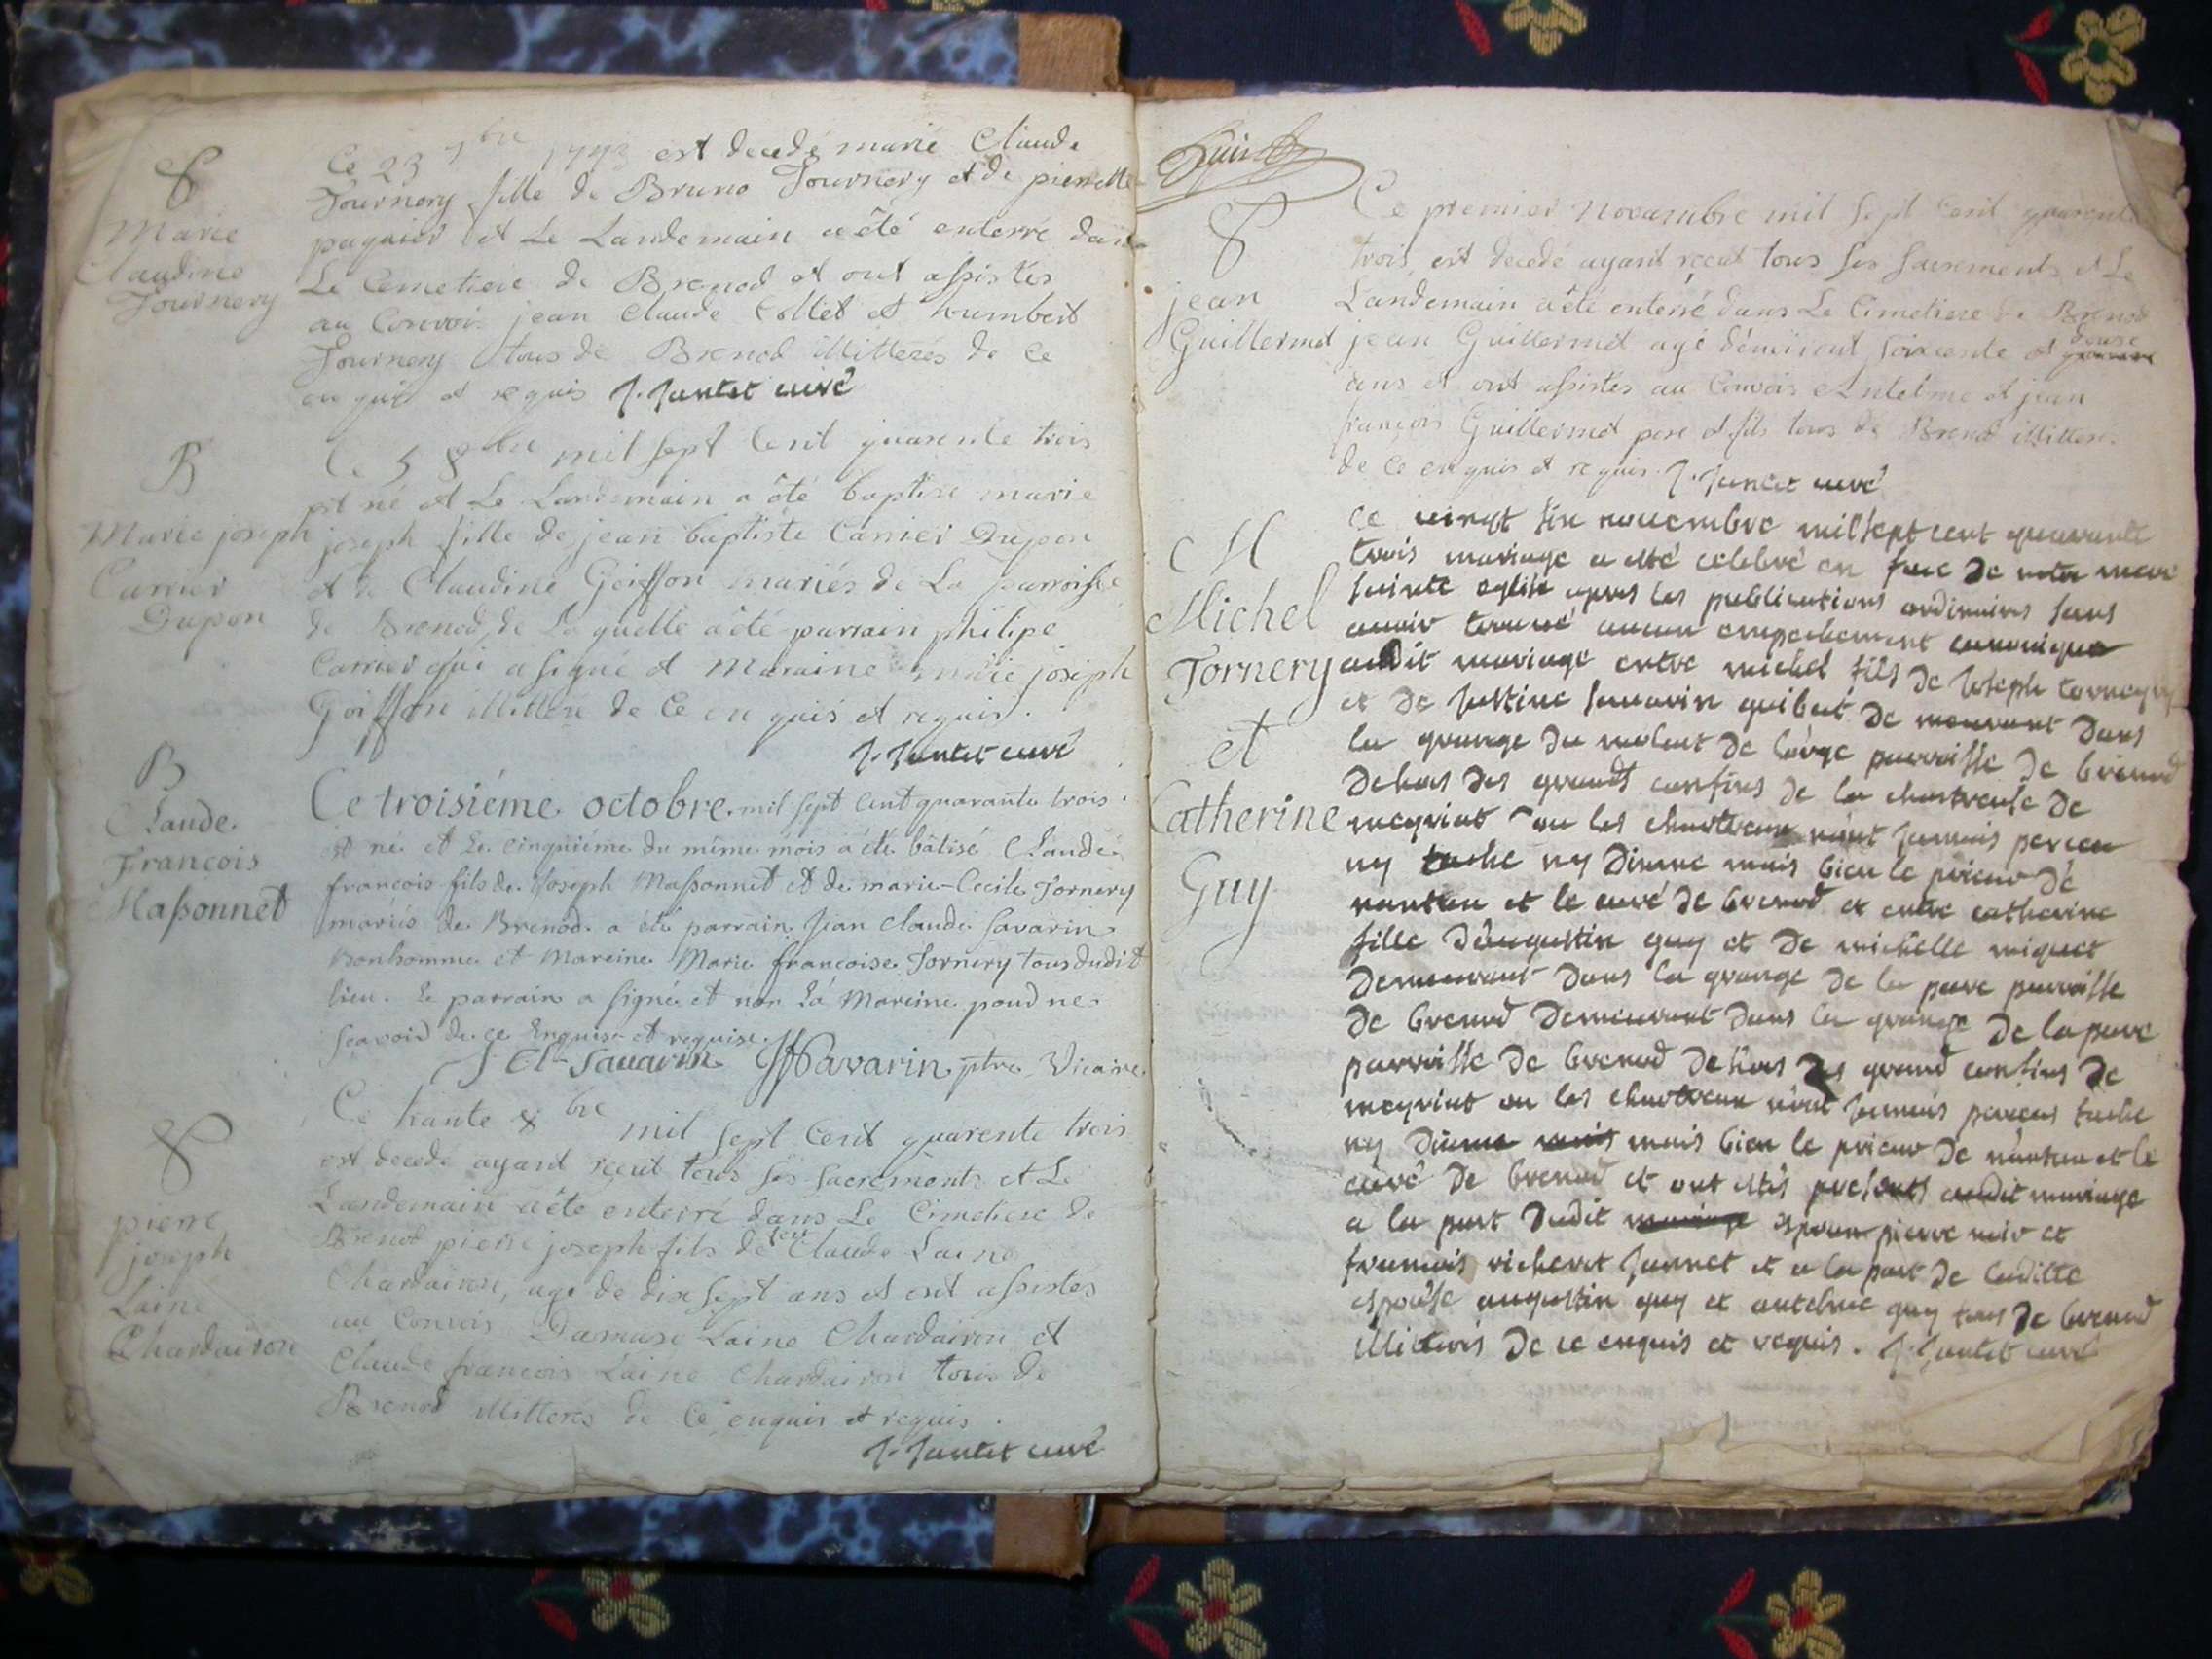 Ce 23 7bre 1743 est decedé marie Claude
Tournery fille de Bruno Tournery et de pierrette
et Le Landemain a été enterré dans
Le Cemetiere de Brenod et ont assistés
au Convois jean Claude Collet et humbert
Tournery tous de Brenod illitterés de Ce
enquis et requis J. Jantet curé
S
Marie
Claudine
Tournery
Ce 5 8bre mil sept Cent quarente trois
est né et Le Landemain a été baptisé marie
joseph fille de jean baptiste Carrier Dupon
et de Claudine Goiffon mariés de La parroisse
de Brenod de La quelle a été parrain philipe
Carrier qui a signé et Maraine marie joseph
Goiffon illittéré de Ce enquis et requis.
J. Jantet curé
B
Marie joseph
Carrier
Dupon
Ce troisiéme octobre mil sept cent quarante trois
est né et le cinquiéme du même mois a été bâtisé Claude
françois fils de Joseph Massonnet et de marie-Cecile Tornery
mariés de Brenod a été parrain Jean claude Savarin
Bonhomme et Mareine Marie françoise Tornery tous dudit
lieu. le parrain a signé et non la Mareine pour ne
scavoir de ce Enquise et requise.
J Cl-Savarin Savarin ptre Vicaire
B
Claude
François
Massonnet
Ce trante 8bre mil sept Cent quarente trois
est decedé ayant reçeut tous ses sacrements et Le
Landemain a été enterré dans Le Cimetiere de
Brenod pierre joseph fils de feu Claude Laine
Chardairon, agé de dix sept ans et ont assistés
au Convois Damase Laine Chardairon et
Claude françois Laine Chardairon tous de
Brenod illitterés de Ce enquis et requis.
J. Jantet curé
S
pierre
joseph
Laine
Chardairon
Ce premier Novembre mil sept Cent quarente
trois, est decedé ayant reçeut tous ses sacrements et Le
Landemain a été enterré dans Le Cimetiere de Brenod
jean Guillermet agé d'environt soixcente et douse
ans et ont assistés au Convois Antelme et jean
françois Guillermet pere et fils tous de Brenod illitteré
de Ce enquis et requis. J. Jantet curé
S
jean
Guillermet
ce vingt six novembre mil sept cent quarante
trois mariage a esté celebré en face de notre mere
sainte eglise apres les publications ordinaires sans
avoir trouvé aucun empechement canonique
audit mariage entre michel fils de Joseph tornery
et de Justine savarin quibet de meurant dans
la grange du molart de lorge parroisse de brenod
dehors des grands confins de la chartreuse de
meyriat ou les chartreux n'ont jamais perceu
ny tache ny Disme mais bien le prieur de
nantua et le curé de brenod et entre catherine
fille d'augustin guy et de michelle miquet
Demeurant Dans la grange de la pure parroisse
de brenod Demeurant Dans la grange de la pure
parroisse de brenod dehors des grand confins de
meyriat ou les chartreux n'ont jamais perceus tache
ny Disme mais bien le prieur de nantua et le
curé de brenod et ont estés presents audit mariage
a la part dudit espoux pierre et
francois richerot Jannet et a la part de laditte
espouse augustin guy et antelme guy tous de brenod
illiterés de ce enquis et requis. J. Jantet curé
M
Michel
Tornery
et
Catherine
Guy